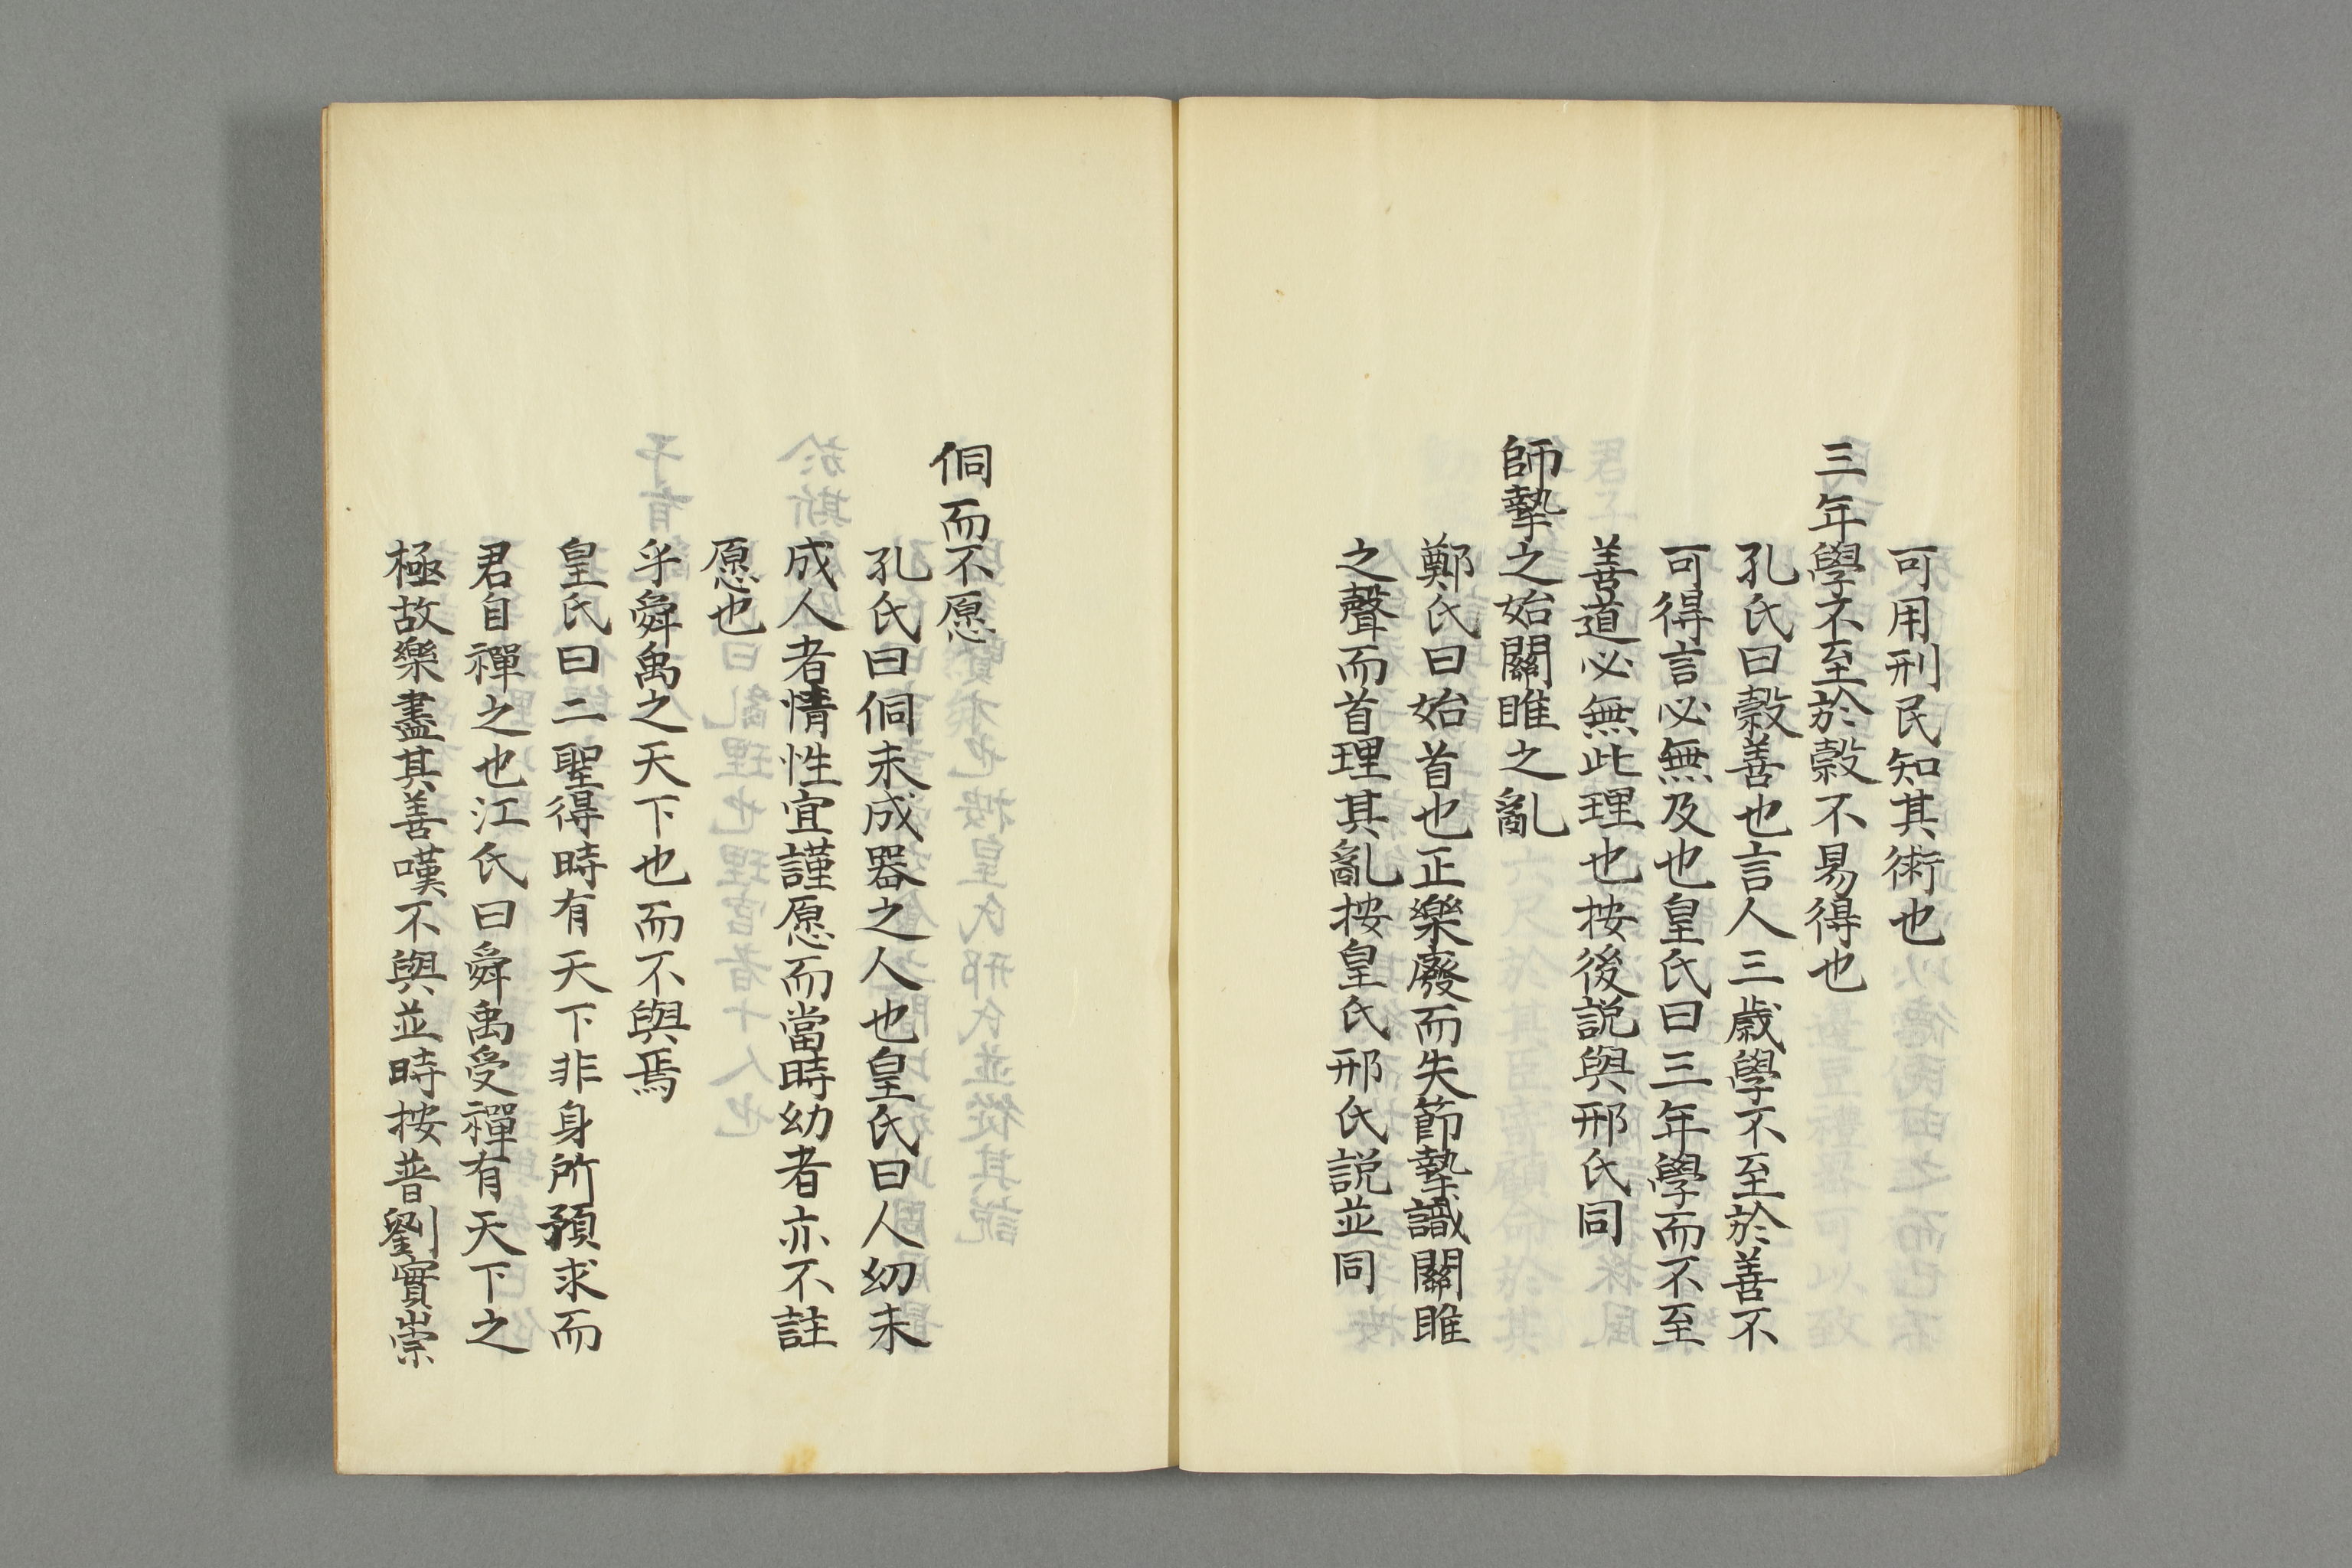 可用刑民知其術也
三年學不至於穀不易得也
孔氏曰穀善也言人三歲學不至於善不
可得言必無及也皇氏曰三年學而不至
善道必無此理也按後説與邢氏同
師摯之始關雎之亂
鄭氏曰始首也正樂廢而失節摯識關雎
之聲而首理其亂按皇氏邢氏説並同
侗而不愿
孔氏曰侗未成器之人也皇氏曰人幼未
成人者情性宜謹愿而當時幼者亦不註
愿也
乎舜禹之天下也而不與焉
皇氏曰二聖得時有天下非身所預求而
君自禪之也江氏曰舜禹受禪有天下之
極故樂盡其善嘆不與並時按普劉實崇